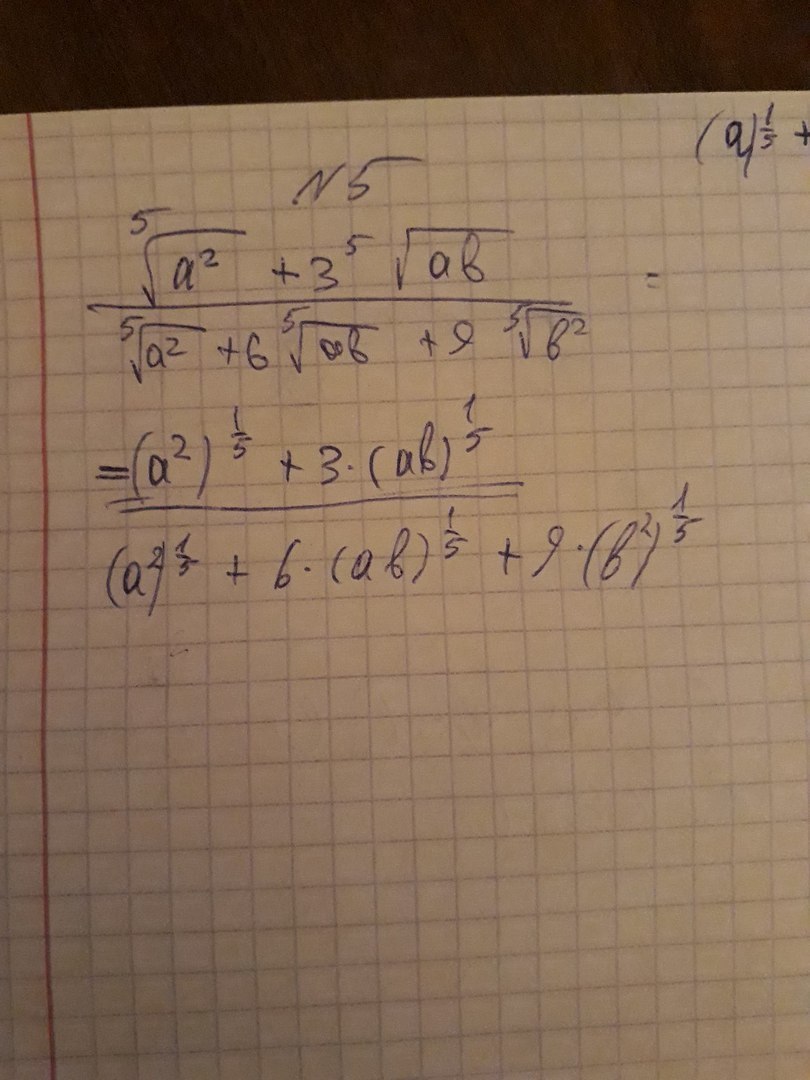 (a)^{1/5} +
№5
\frac{\sqrt[5]{a^2} + 3 \sqrt[5]{ab}}{\sqrt[5]{a^2} + 6 \sqrt[5]{ab} + 9 \sqrt[5]{b^2}} =
= \frac{(a^2)^{1/5} + 3 \cdot (ab)^{1/5}}{(a^2)^{1/5} + 6 \cdot (ab)^{1/5} + 9 \cdot (b^2)^{1/5}}